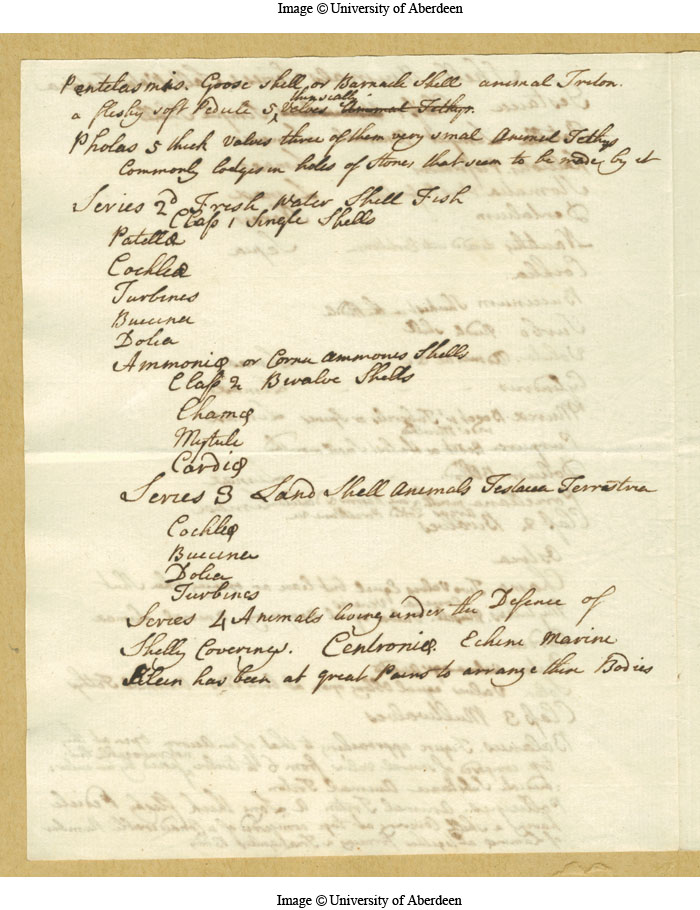 Image © University of Aberdeen
Pentelasmis. Goose shell or Barnacle Shell animal Triton.
a fleshy soft Pedicle 5 Valves Animal Tethys.
Pholas 5 thick Valves three of them very smal Animel Tethys
Commonly lodges in holes of Stones that seem to be made by it
Series 2d Fresh Water Shell Fish
Class 1 Single Shells
Patellæ
Cochleæ
Turbines
Buccina
Dolia
Ammoniæ or Cornu Ammones Shells
Class 2 Bivalve Shells
Chamæ
Mytuli
Cardiæ
Series 3 Land Shell Animals Testacea Terrestria
Cochleæ
Buccina
Dolia
Turbines
Series 4 Animals living under the Defence of
Shelly Coverings. Centroniæ. Echini Marini
Klein has been at great Pains to arrange these Bodies
Image © University of Aberdeen